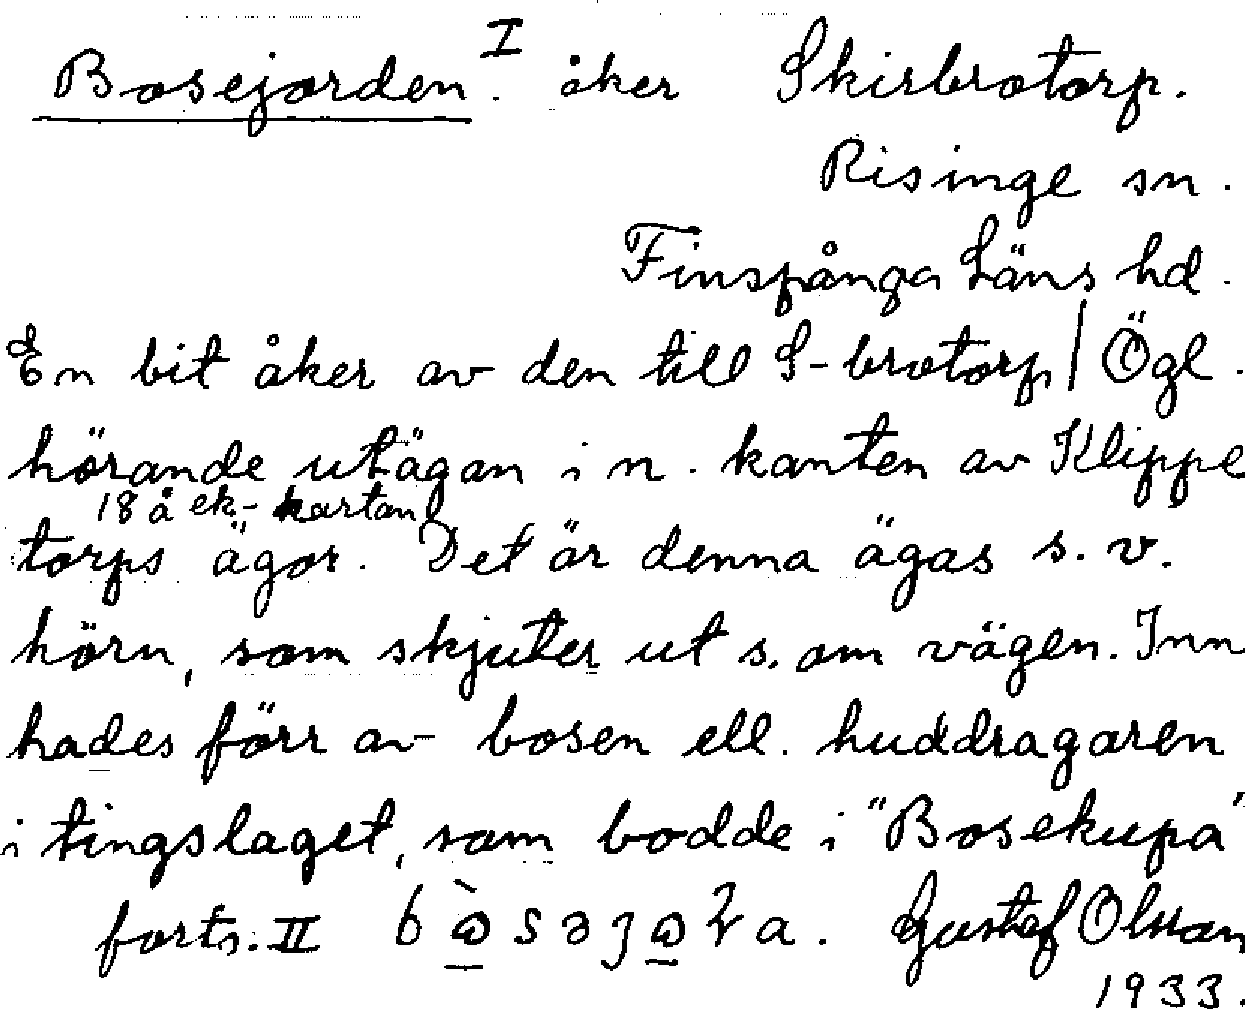 Bosejorden. I åker Skirbrotorp.
Risinge sn.
Finspånga Läns hd.
En bit åker av den till S-brotorp / Ögl.
hörande utägan i n. kanten av Klippe
18 å ek-kartan
torps ägor. Det är denna ägas s. v.
hörn, som skjuter ut s. om vägen. Inn
hades förr av bosen ell. huddragaren
i tingslaget, som bodde i "Bosekupa"
forts. II Gustaf Olsson
1933.